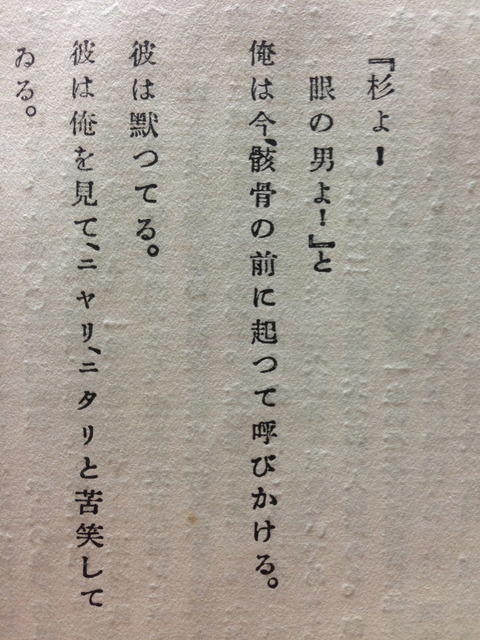 『杉よ！
眼の男よ！』と
俺は今、骸骨の前に起つて呼びかける。
彼は默つてる。
彼は俺を見て、ニヤリ、ニタリと苦笑して
ゐる。